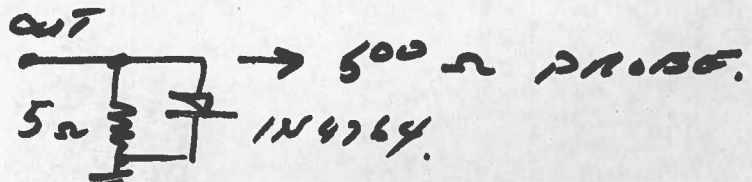 OUT
→ 500 Ω PROBE.
5Ω
1N4764.